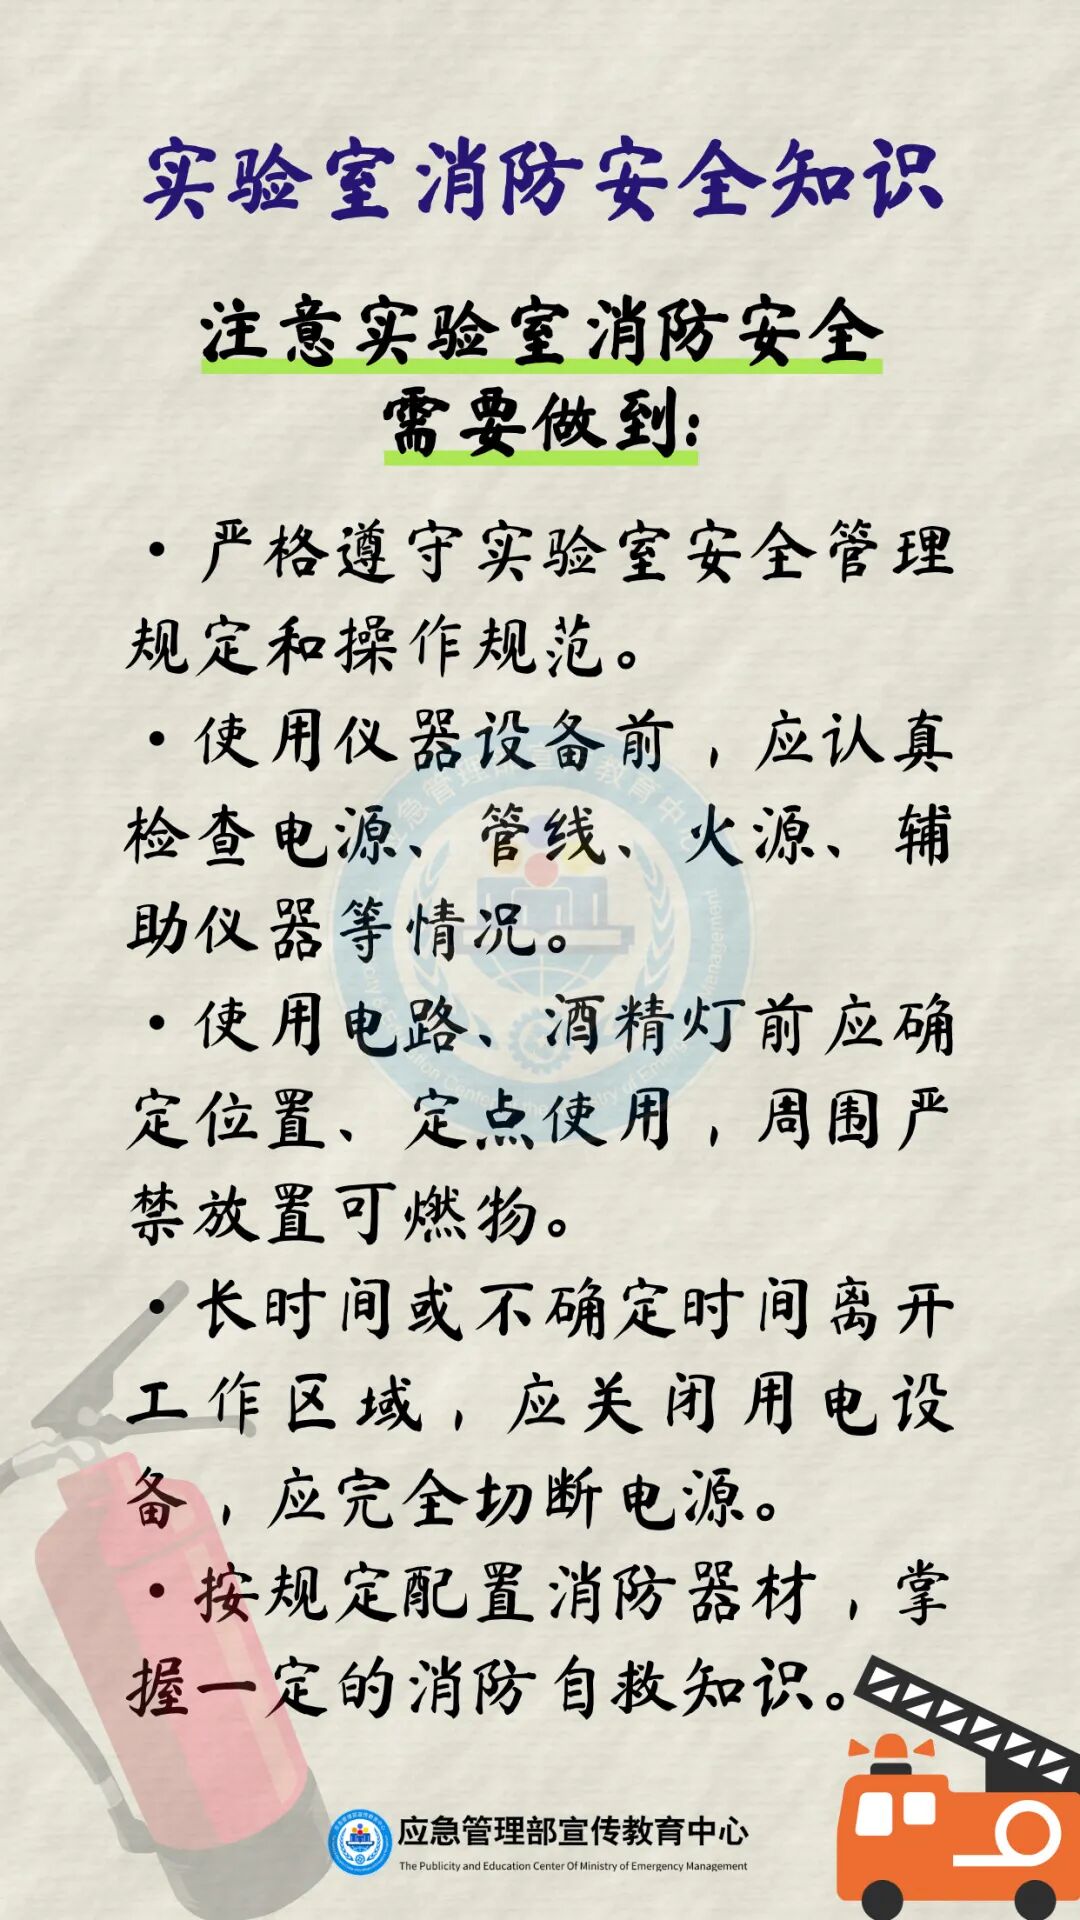 实验室消防安全知识
注意实验室消防安全
需要做到:
·严格遵守实验室安全管理
规定和操作规范。
·使用仪器设备前，应认真
检查电源、管线、火源、辅
助仪器等情况。
·使用电路、酒精灯前应确
定位置、定点使用，周围严
禁放置可燃物。
·长时间或不确定时间离开
工作区域，应关闭用电设
备，应完全切断电源。
·按规定配置消防器材，掌
握一定的消防自救知识。
应急管理部宣传教育中心
The Publicity and Education Center Of Ministry of Emergency Management